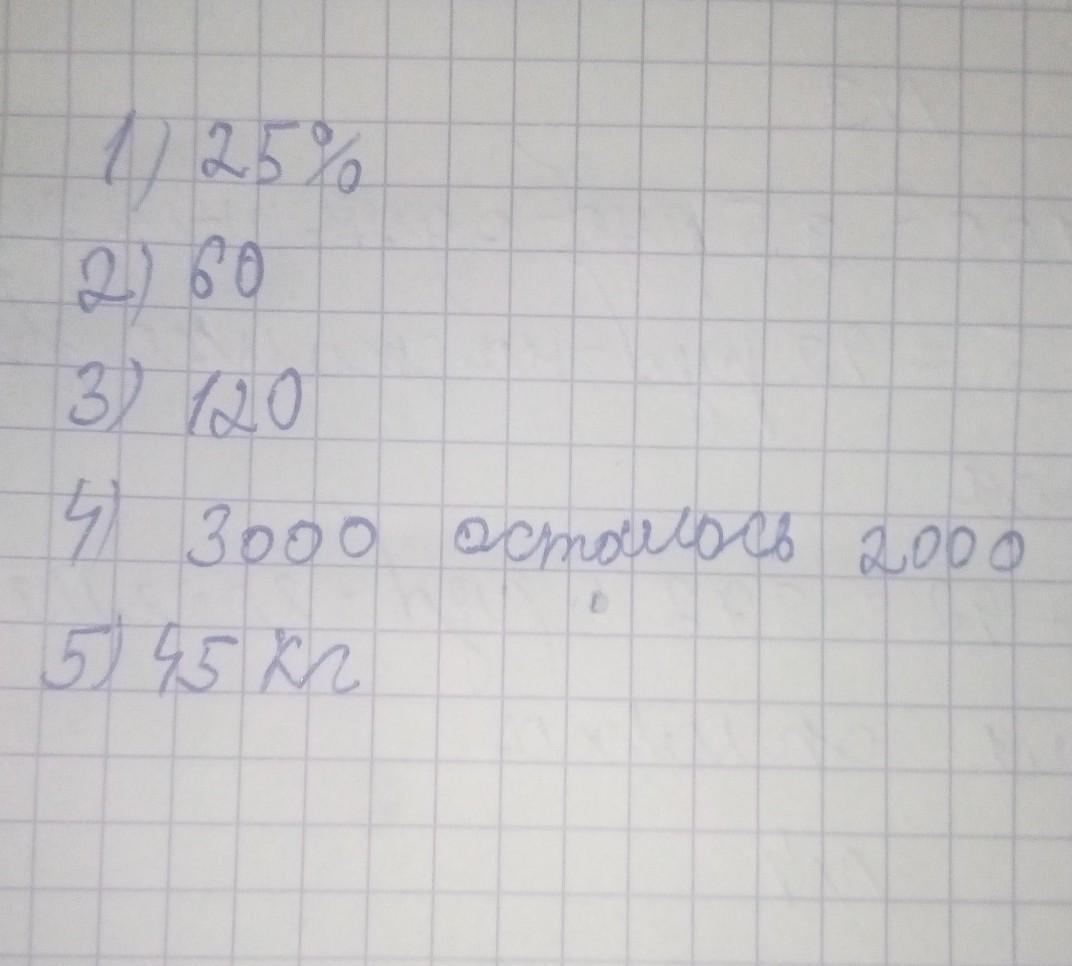 1) 25%
2) 60
3) 120
4) 3000 осталось 2000
5) 45 кг